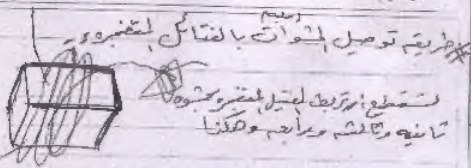 طريقه توصيل الحشوات بالفتائل المتفجره
نستطيع نربط الفتيل المتفجر بحشوه
ثانيه وثالثه ورابعه وهكذا